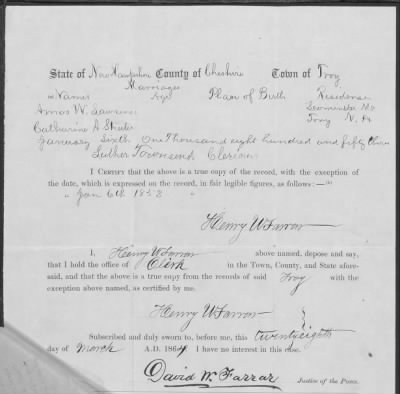 State of New Hampshire County of Cheshire Town of Troy
Marriages
Names Age Place of Birth Residence
Amos W. Lawrence Leominster Ms
Catharine A Troy N. H
January Sixth One Thousand eight hundred and fifty three
Luther Townsend
I CERTIFY that the above is a true copy of the record, with the exception of
the date, which is expressed on the record, in fair legible figures, as follows:—
" Jan 6th 1853 "
Henry W Farrar
I, Henry W Farrar above named, depose and say,
that I hold the office of Clerk in the Town, County, and State afore-
said, and that the above is a true copy from the records of said Troy with the
exception above named, as certified by me.
Henry W Farrar
Subscribed and duly sworn to, before me, this twentyeighth
day of March A.D. 1864 I have no interest in this case.
David W. Farrar Justice of the Peace.